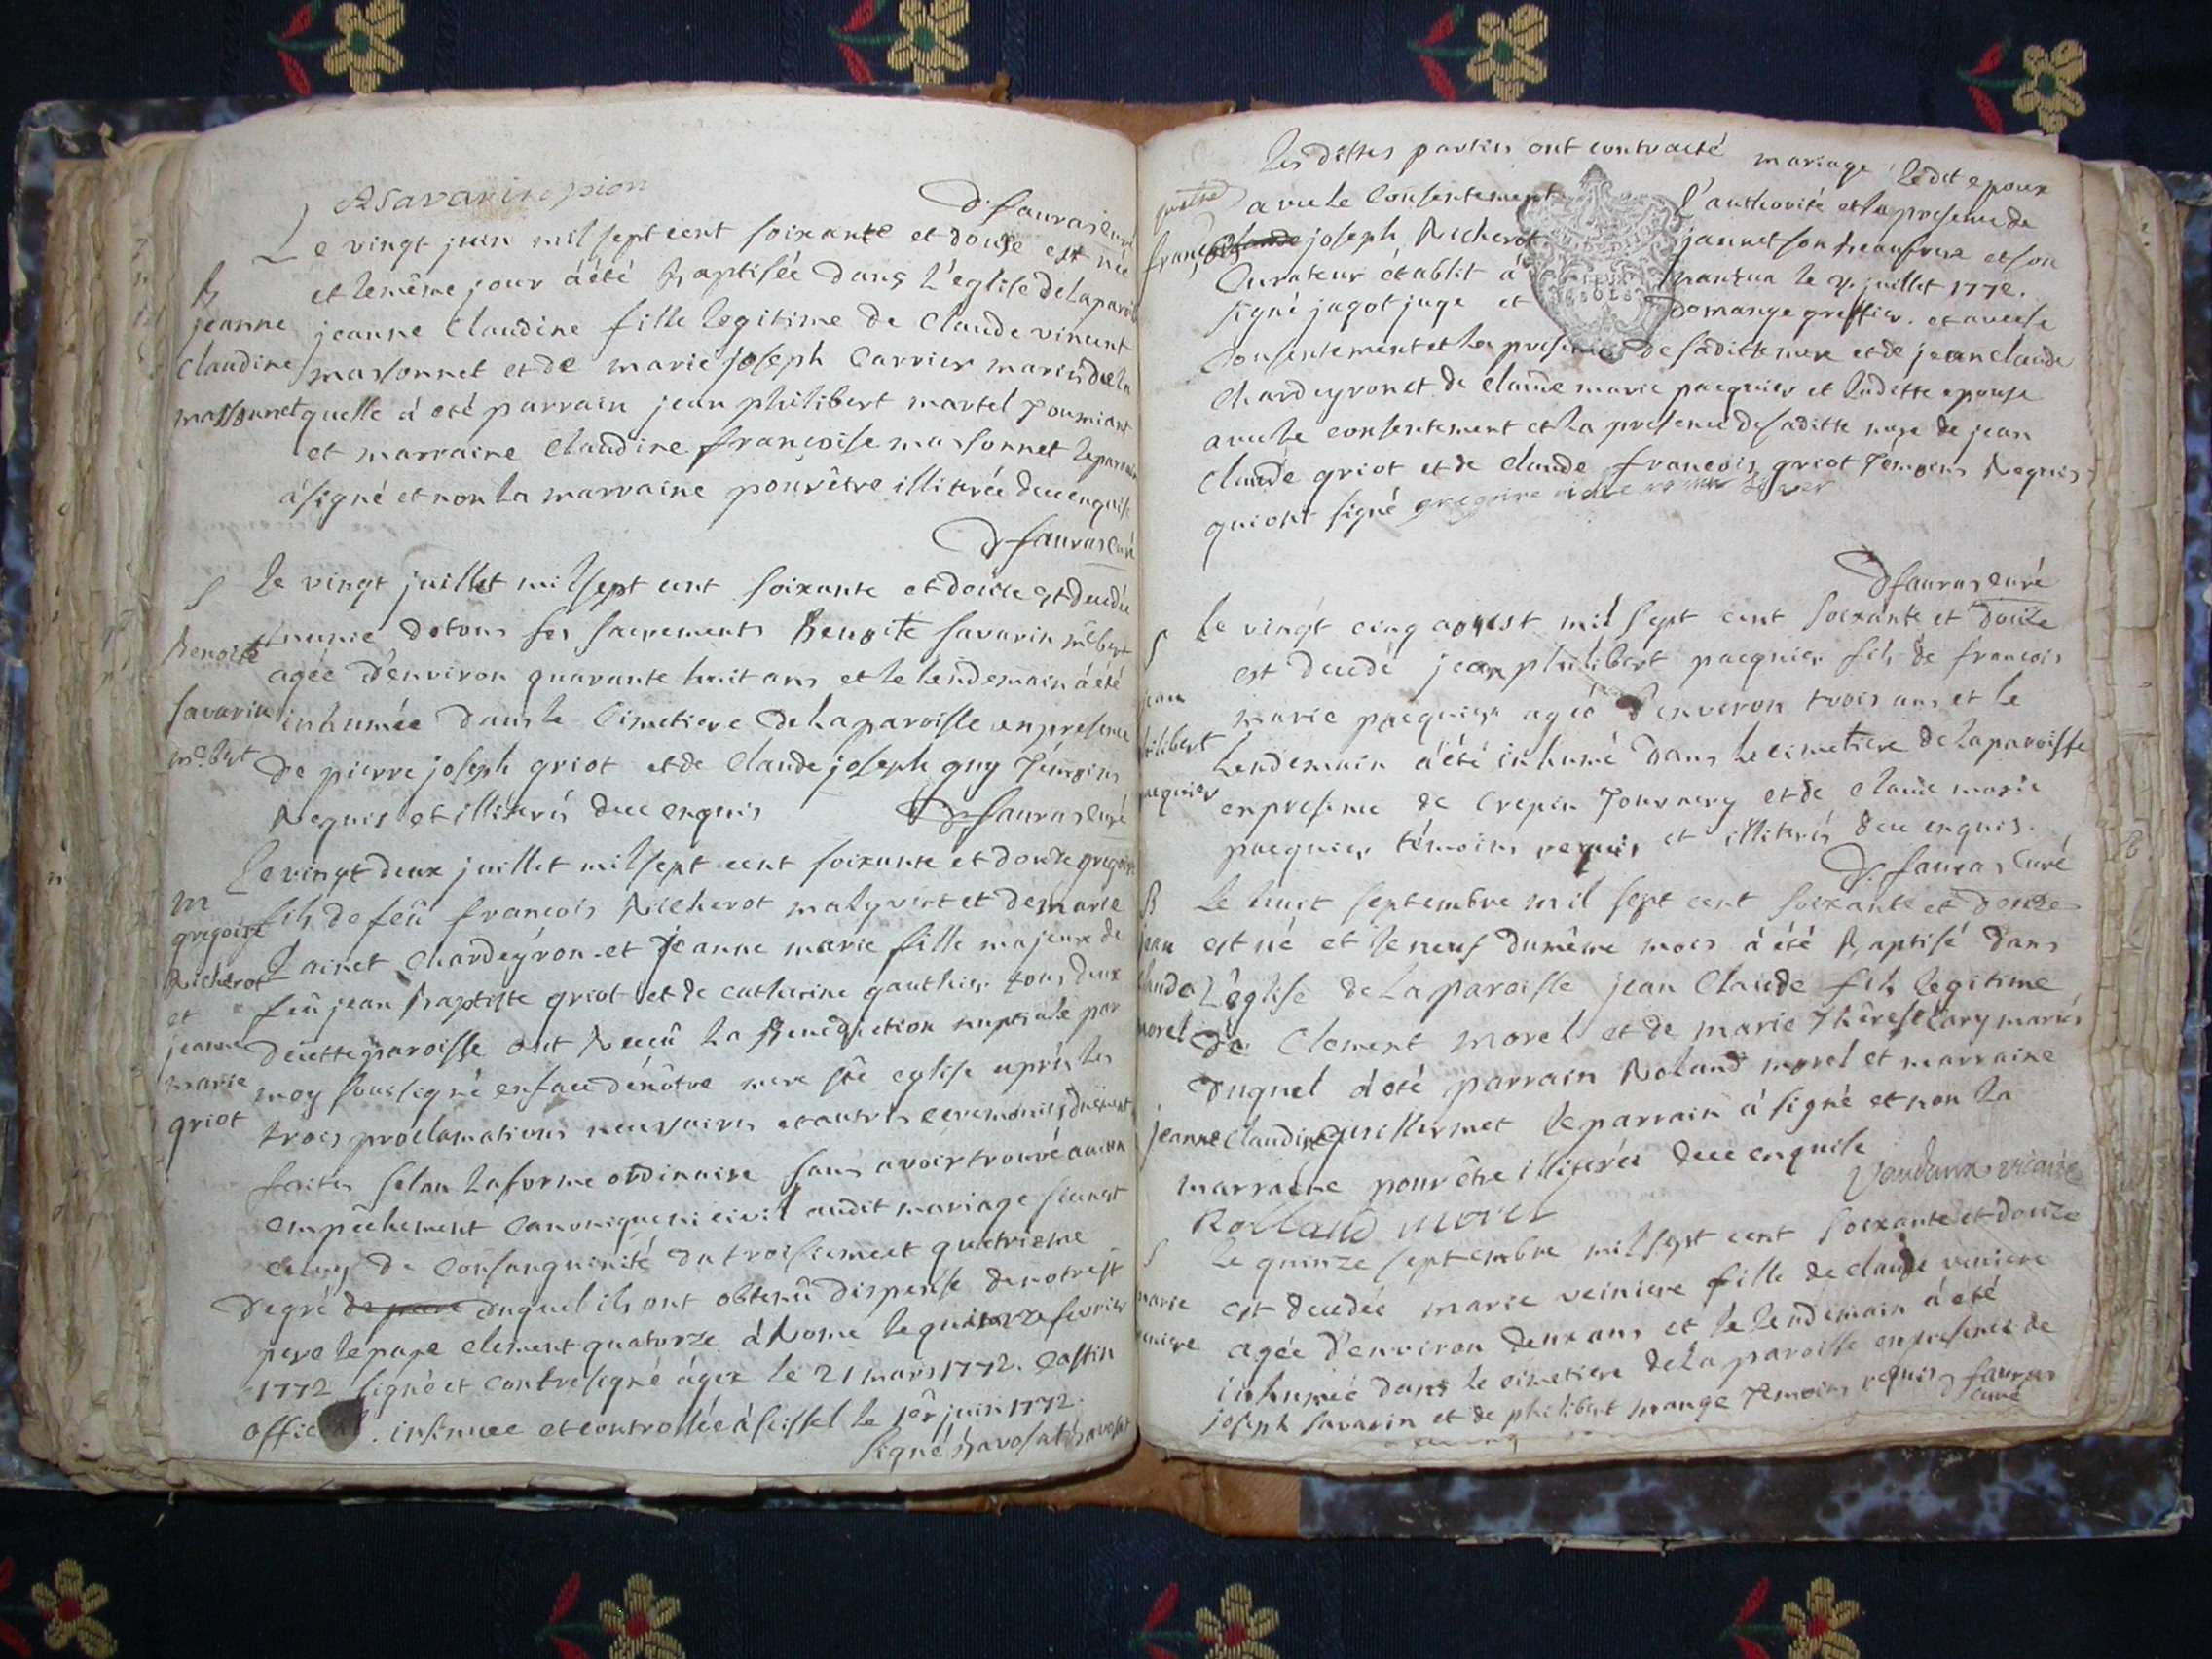 D. fauras curé
Le vingt juin mil sept cent soixante et douse est née
B
et le même jour à été Baptisée dans l'église de la paroi
jeanne
jeanne Claudine fille legitime de Claude vincent
Claudine
massonnet et de marie joseph Carrier mariés de la
massonnet
quelle à été parrain jean philibert martel
et marraine Claudine françoise massonnet le parrain
à signé et non la marraine pour être illiterée de ce enquise
D fauras curé
S
le vingt juillet mil sept cent soixante et douze est decedée
munie de tous ses sacrements Benoite savarin
Benoite
agée d'environ quarante huit ans et le lendemain à été
savarin
inhumée dans le Cimetiere de la paroisse en presence
de pierre joseph griot et de Claude joseph guy témoins
Requis et illiterés de ce enquis
D. fauras curé
Le vingt deux juillet mil sept cent soixante et douze gregoire
m
fils de feû francois Richerot et de marie
gregoire
Chardeyron et jeanne marie fille majeure de
Richerot
feû jean Baptiste griot et de catherine gauthier tous deux
et
de cette paroisse ont Recû la Benediction nuptiale par
jeanne
marie
moy soussigné en face de nôtre mere ste eglise après les
griot
trois proclamations necessaires et autres ceremonies duement
faites selon la forme ordinaire sans avoir trouvé aucun
empêchement Canonique ni civil audit mariage si ce nest
celuy de Consanguinité du troisieme et quatrieme
degré duquel ils ont obtenû dispense de notre st
pere le pape clement quatorze à Rome le fevrier
1772 signé et contresigné à gex le 21 mars 1772. Castin
official. insinuee et controllée à seissel le 1er juin 1772.
signé
les dittes parties ont contracté mariage ledit epoux
avec le Consentement l'authorité et la presence de
françois joseph Richerot jannet son beaufrere et son
Curateur établit à nantua le juillet 1772.
signé jagot juge et domange greffier. et avec le
Consentement et la presence de saditte mere et de jean claude
Chardeyron et de Claude marie pacquier et laditte epouse
avec le consentement et la presence de saditte mere de jean
Claude griot et de claude francois griot témoins Requis
qui ont signé
D fauras curé
S
le vingt cinq aoust mil sept cent soixante et douze
est decedé jean philibert pacquier fils de francois
jean
marie pacquier agé d'environ trois ans et le
philibert
lendemain à été inhumé dans le cimetiere de la paroisse
pacquier
en presence de Crepin Tournery et de claude marie
pacquier témoins requis et illiterés de ce enquis.
D. fauras Curé
B
le huit septembre mil sept cent soixante et douze
jean
est né et le neuf du même mois à été Baptisé dans
claude
l'église de la paroisse jean Claude fils legitime
morel
de Clement morel et de marie Thérese Cary mariés
duquel à été parrain Roland morel et marraine
jeanne Claudine guillermet le parrain à signé et non la
marraine pour être illiterée de ce enquise
vicaire
Rolland morel
S
le quinze septembre mil sept cent soixante et douze
marie
est decedée marie veiniere fille de claude veiniere
veiniere
agée d'environ deux ans et le lendemain à été
inhumée dans le cimetiere de la paroisse en presence de
joseph savarin et de philibert témoins requis D fauras
curé